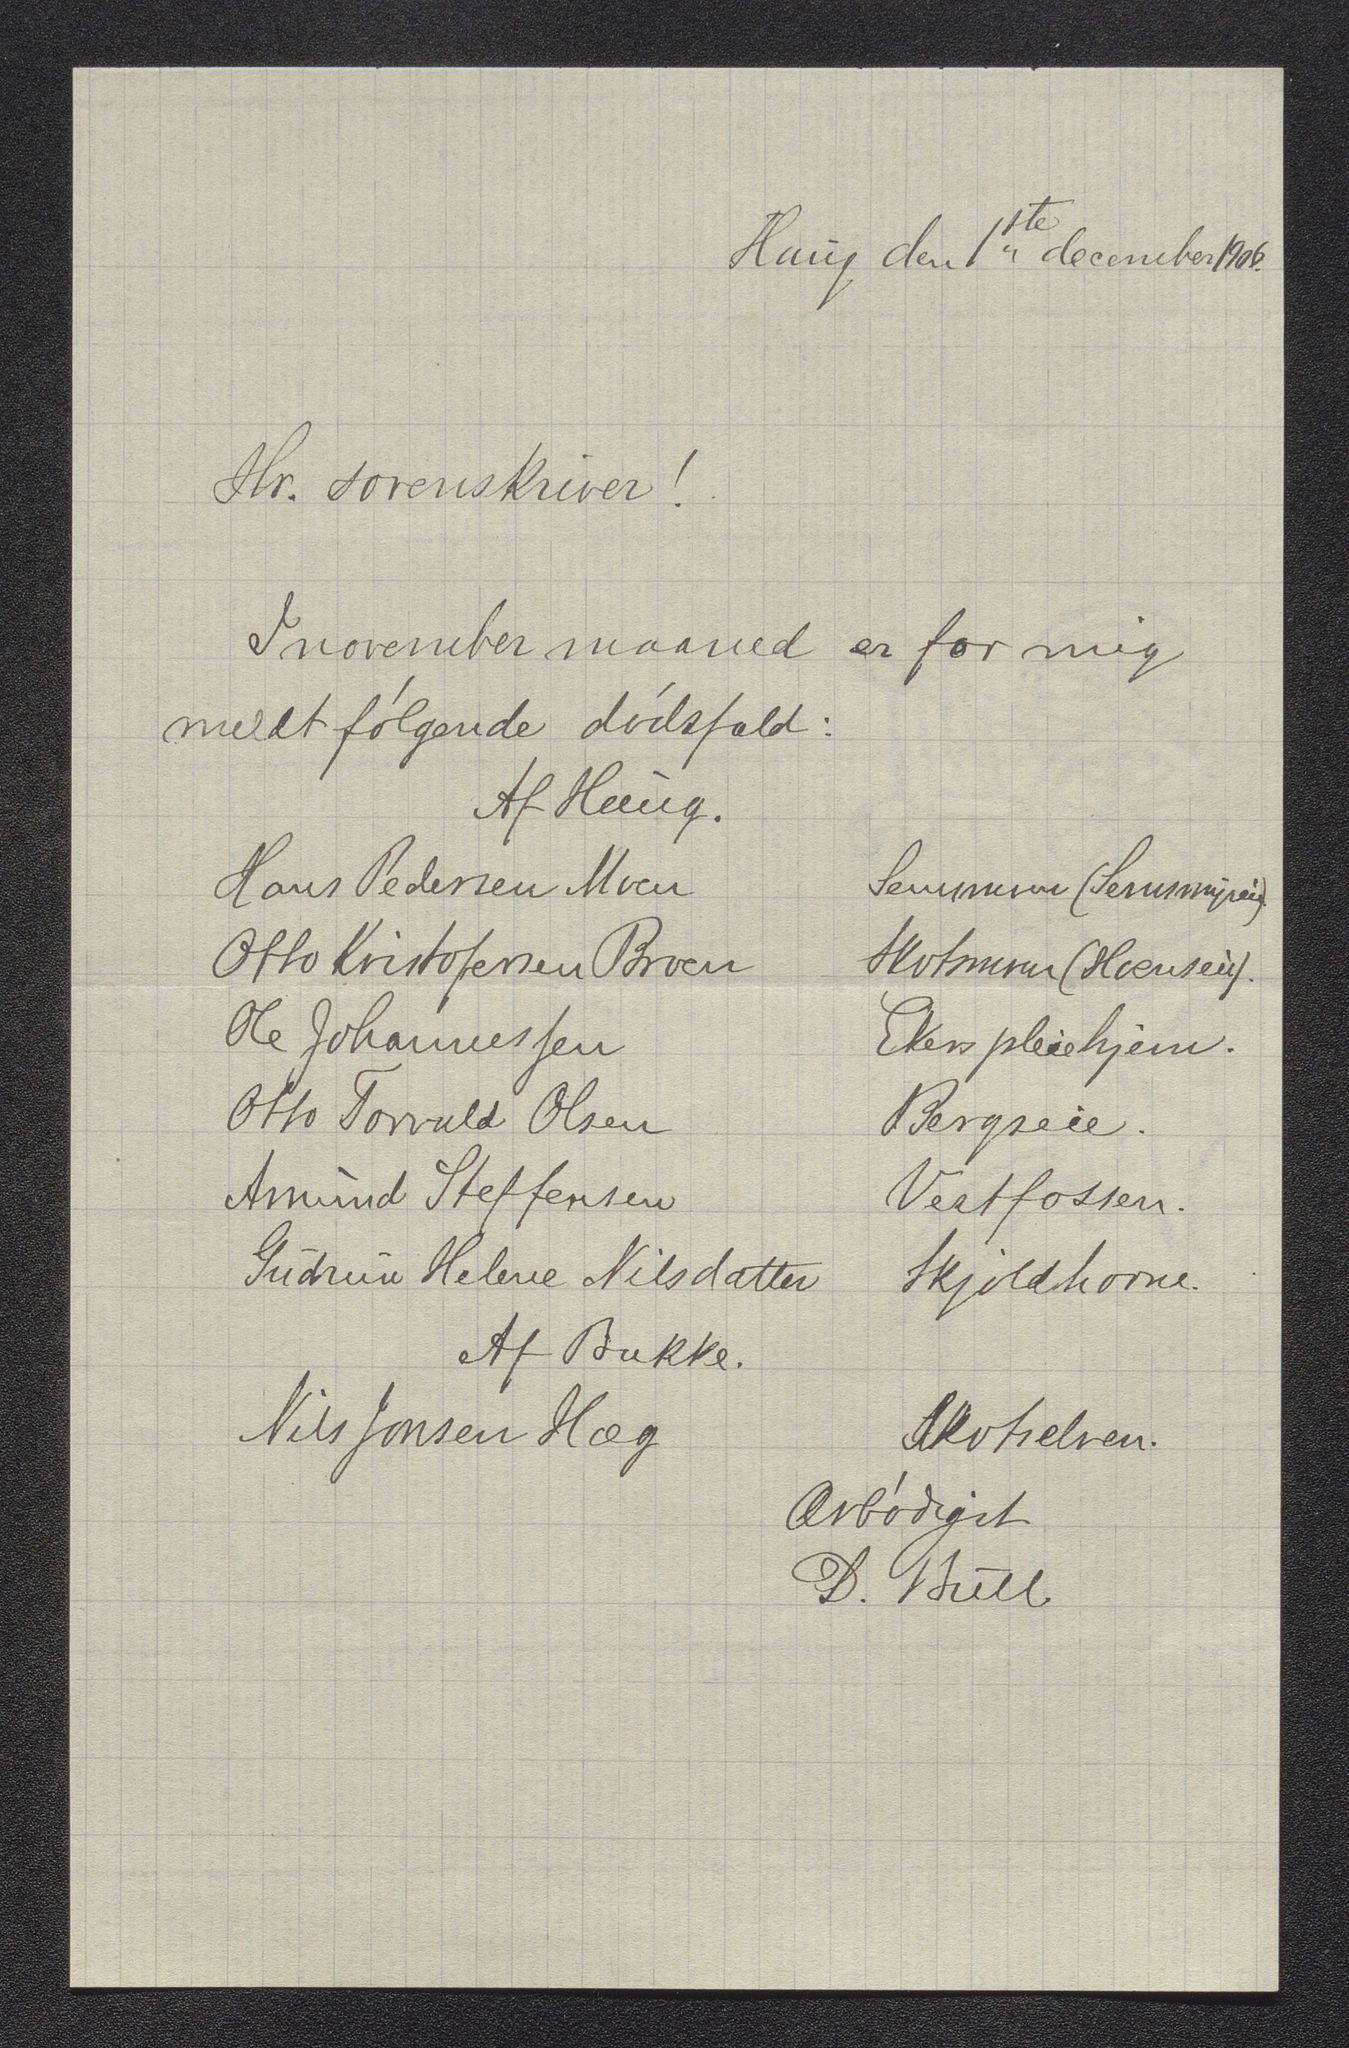 Haug den 1ste december 1906.
Hr. sorenskriver!
I november maaned er for mig
meldt følgende dødsfald:
Af Haug.
Hans Pedersen Moen Semsmoen (Semsmyren).
Otto Kristofersen Broen Skotsmoen (Hoenseie).
Ole Johannessen Ekers pleiehjem.
Otto Torvald Olsen Bergseie.
Amund Steffensen Vestfossen.
Gudrun Helene Nilsdatter Skjoldhorne.
Af Bakke.
Nils Jonsen Hæg Skotselven.
Ærbødigst
D. Bull.